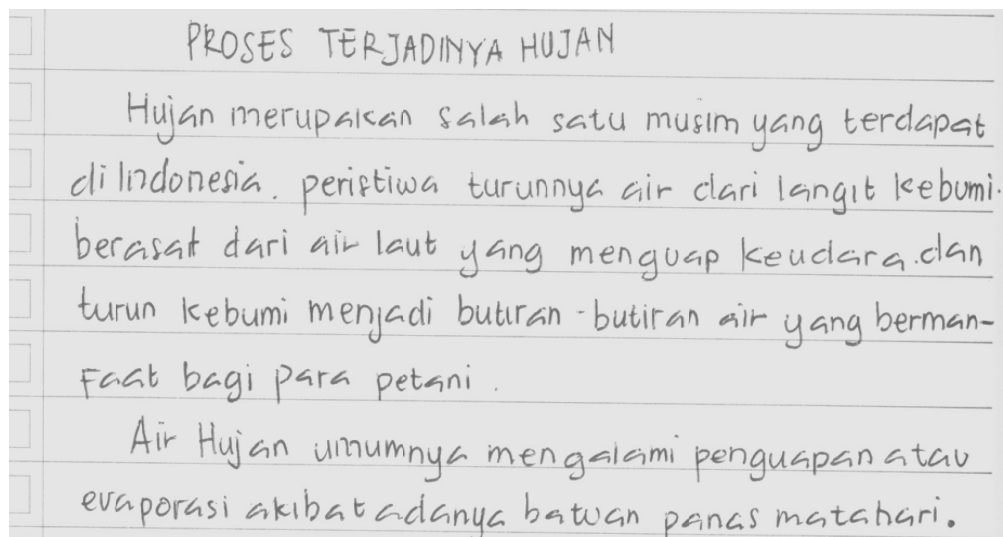 PROSES TERJADINYA HUJAN
Hujan merupakan salah satu musim yang terdapat
di Indonesia. peristiwa turunnya air dari langit kebumi.
berasat dari air laut yang menguap keudara.dan
turun kebumi menjadi butiran-butiran air yang berman-
Faat bagi para petani.
Air Hujan umumnya mengalami penguapan atau
evaporasi akibat adanya batuan panas matahari.